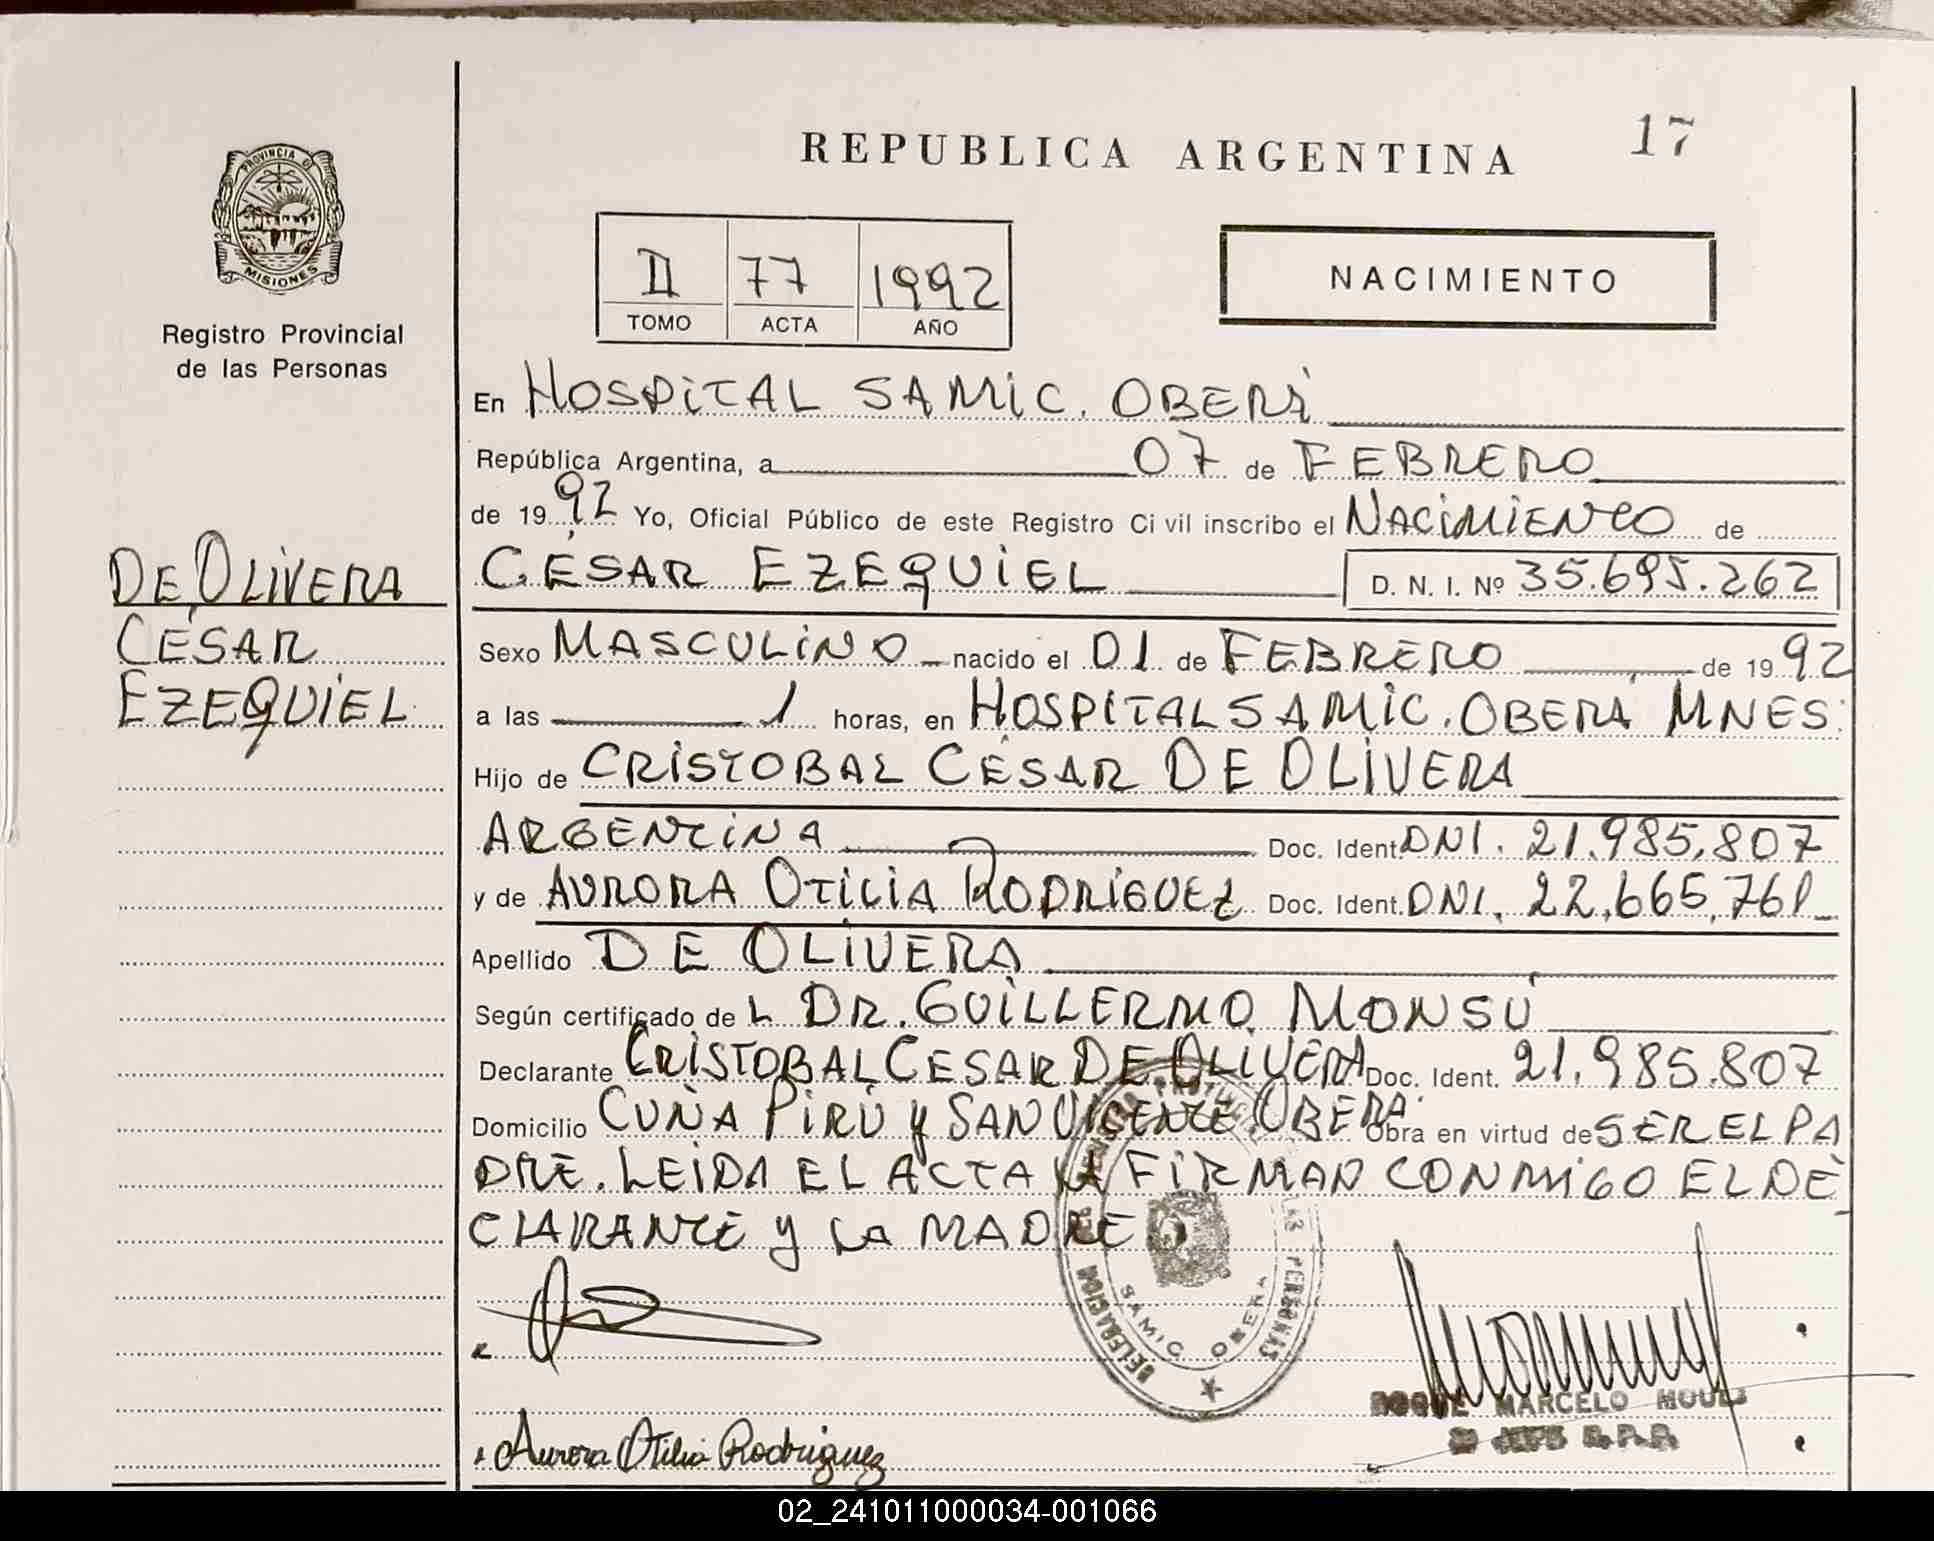 REPUBLICA ARGENTINA
17
PROVINCIA D
MISIONES
Registro Provincial
de las Personas
II 77 1992
TOMO ACTA AÑO
NACIMIENTO
En HOSPITAL SAMIC. OBERÁ
República Argentina, a 07 de FEBRERO
de 1992 Yo, Oficial Público de este Registro Ci vil inscribo el NACIMIENTO de
DE OLIVERA
CÉSAR
EZEQUIEL
CÉSAR EZEQUIEL D. N. I. Nº 35.695.262
Sexo MASCULINO nacido el 01 de FEBRERO de 1992
a las 1 horas, en HOSPITAL SAMIC. OBERÁ MNES.
Hijo de CRISTOBAL CÉSAR DE OLIVERA
ARGENTINA Doc. Ident. DNI. 21.985.807
y de AURORA OTILIA RODRIGUEZ Doc. Ident. DNI. 22.665.761
Apellido DE OLIVERA
Según certificado de L DR. GUILLERMO MONSÚ
Declarante CRISTOBAL CESAR DE OLIVERA Doc. Ident. 21.985.807
Domicilio CUÑA PIRÚ y SAN VICENTE. OBERÁ. Obra en virtud de SER EL PA
DRE. LEIDA EL ACTA LA FIRMAN CONMIGO EL DE
CLARANTE y LA MADRE
SAMIC OBERA
LAS PERSONAS
Aurora Otilia Rodriguez
ROQUE MARCELO
JEFE R.P.P.
02_241011000034-001066